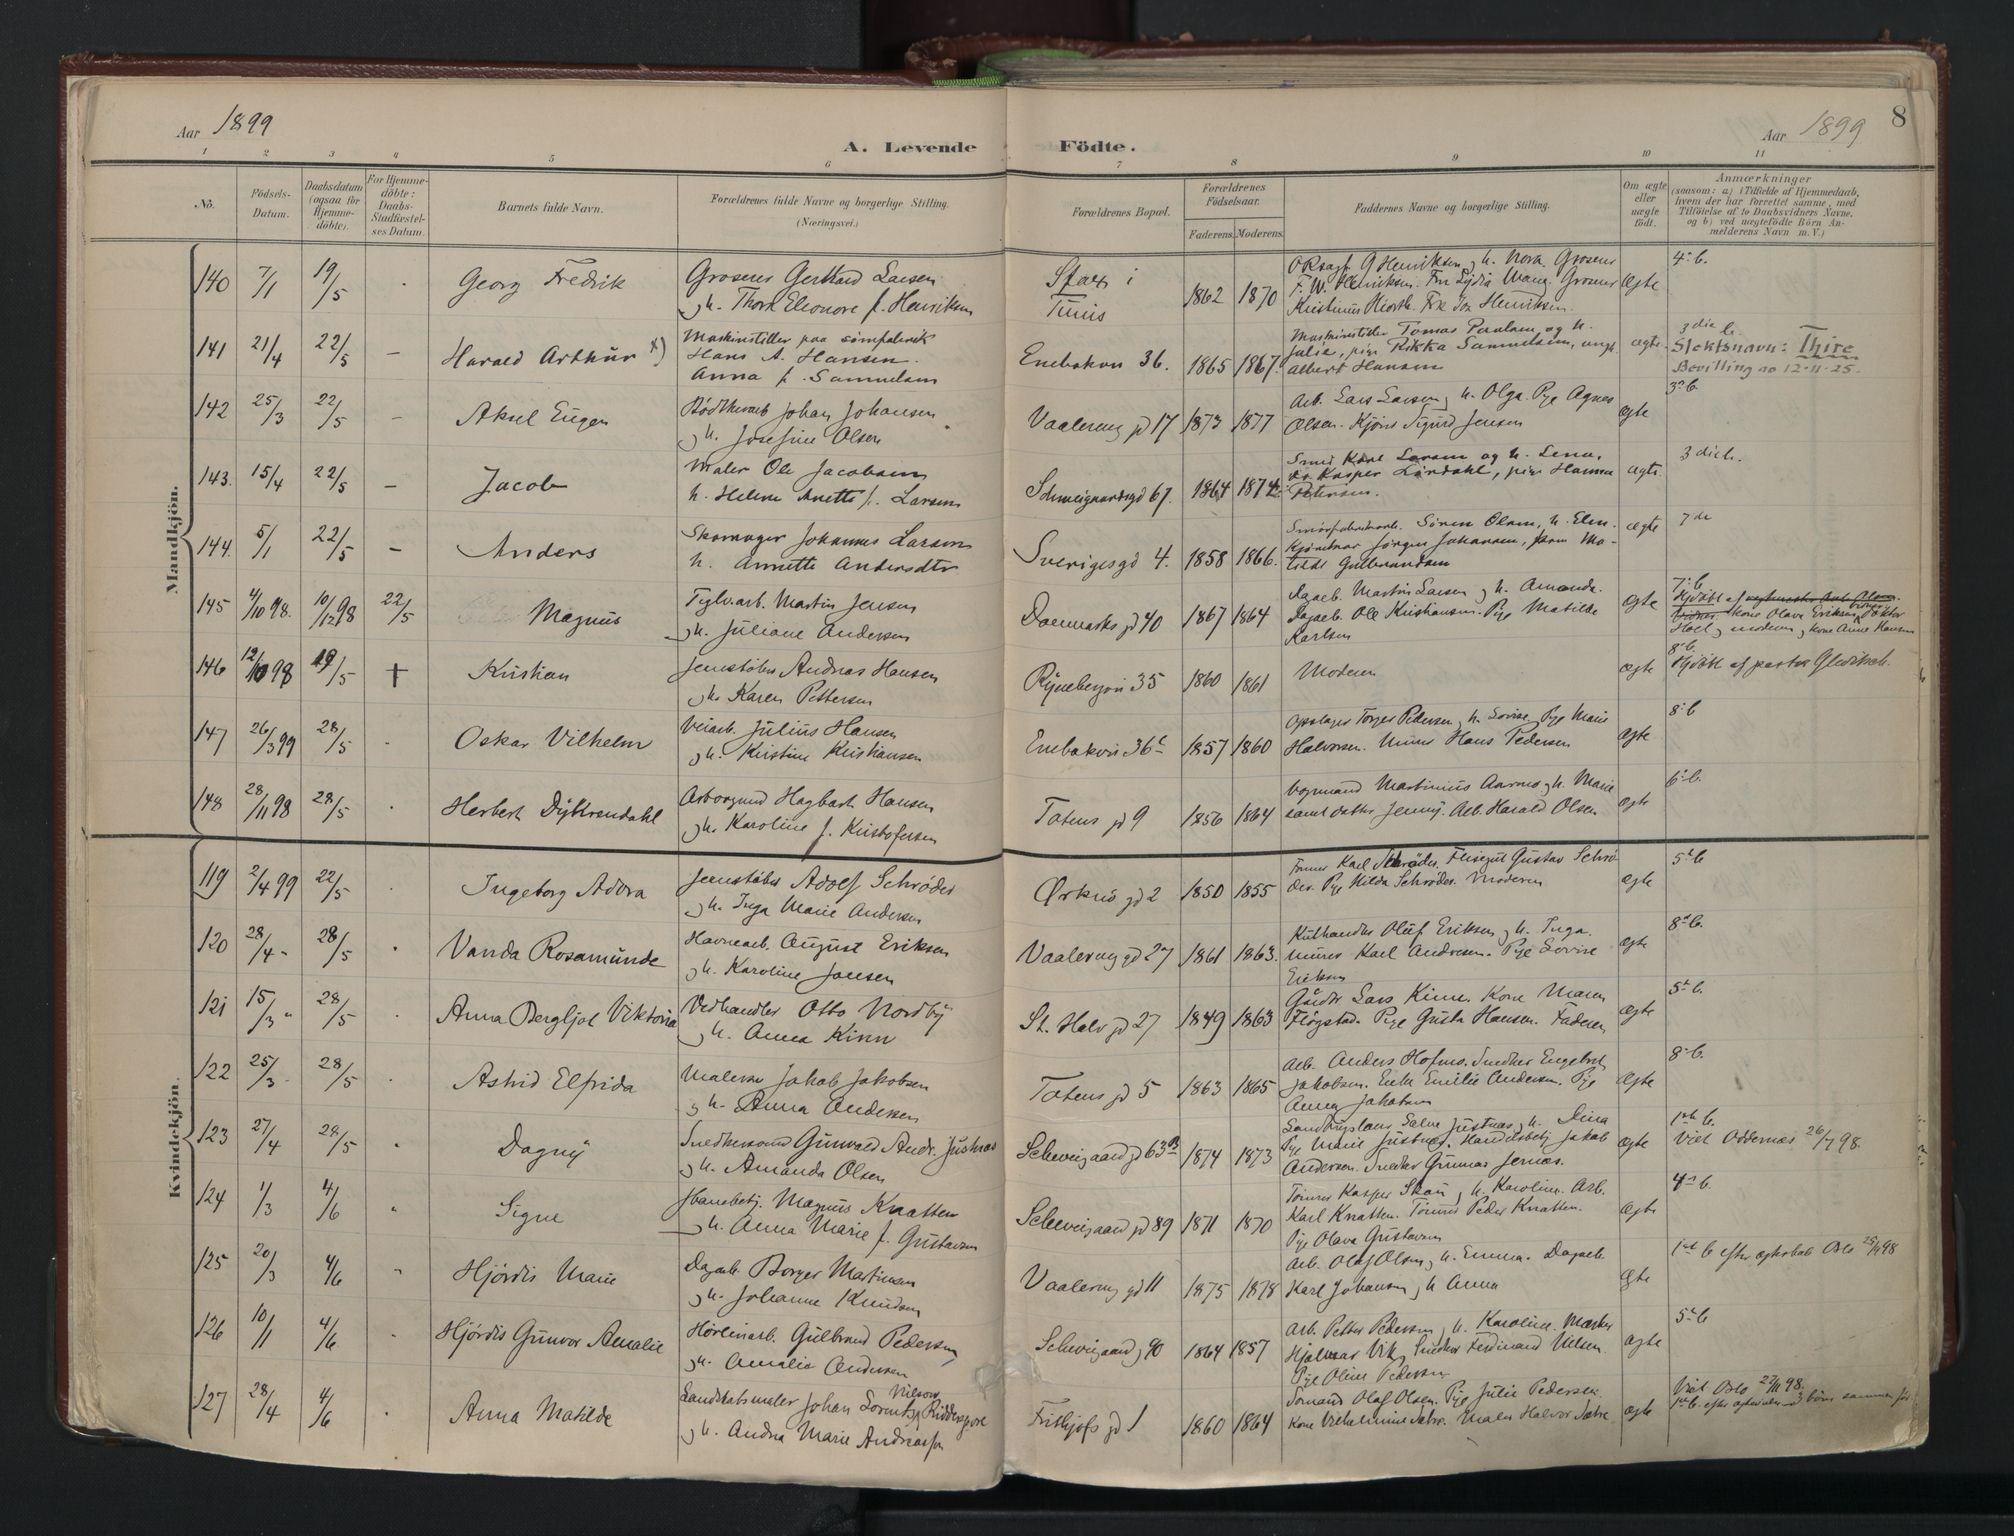 Aar 1899
A. Levende Födte.
Aar 1899
8
1 2 3 4 5 6 7 8 9 10 11
No.
Födsels-Datum.
Daabsdatum (ogsaa for Hjemme-döbte).
For Hjemme-döbte: Daabs-Stadfæstel-ses Datum.
Barnets fulde Navn.
Forældrenes fulde Navne og borgerlige Stilling. (Næringsvei.)
Forældrenes Bopæl.
Forældrenes Födselsaar.
Faderens. Moderens.
Faddernes Navne og borgerlige Stilling.
Om ægte eller uægte födt.
Anmærkninger
(saasom: a) i Tilfælde af Hjemmedaab,
hvem der har forrettet samme, med
Tilföielse af to Daabsvidners Navne,
og b) ved uægtefödte Börn An-
melderens Navn m. V.)
Mandkjön.
140 7/1 19/5 Georg Fredrik
Groserer Gerhard Larsen
og h. Thora Eleonore f. Henriksen
Sfax i Tunis 1862 1870
G Henriksen og h. Nora. Groserer
F. W. Henriksen. Fru Lydia Wang. Groserer
Henriksen.
Ægte 4. b.
141 21/4 22/5 – Harald Arthur x)
Maskinstiller paa sömfabrik
Hans A. Hansen.
Anna f. Samuelsen
Enebakvn 36. 1865 1867.
Maskinstiller Tomas Paulsen og h.
Julie, pige Rikka Samuelsen, ungk.
Albert Hansen
ægte. 3die b.
Slektsnavn: Thire
Bevilling av 12-11-25.
142 25/3 22/5 – Aksel Eugen
Bödtkerarb Johan Johansen
og h. Josefine Olsen
Vaalereng gd 17 1873 1877
Arb. Lars Larsen og h. Olga. Pige Agnes
Olsen. Sigurd Jensen
ægte 3. b.
143. 15/4 22/5 – Jacob
Maler Ole Jacobsen
h. Helene Anette f. Larsen
Schweigaardsgd 67. 1864 1874
Smed Karl Larsen og h. Lena,
Kasper Lördahl, pige Hanna
Petersen.
ægte. 3die b.
144. 5/1 22/5 – Anders
Skomager Johannes Larsen
h. Annette Andersdtr
Sverigesgd 4. 1858 1866.
Sören Olsen, h. Elen.
Jörgen Johansen, Ma-
tilde Gulbrandsen
ægte 7de
145 4/10 98. 10/12 98 22/5 Magnus
Teglv.arb. Martin Jensen
og h. Juliane Andersen
Danmarks gd 40 1867 1864
Dagarb. Martin Larsen og h. Amanda.
Dagarb. Ole Kristiansen. Pige Matilde
Karlsen
ægte 7. b.
Hjdöbt af
kone Olava Eriksen
modern og kone Anne Hansen
146 12/10 98 19/5 + Kristian
Jernstöber Andreas Hansen
og h. Karen Pettersen
Ryenbergvn 35 1860 1861
Moderen
ægte 8. b.
Hjdöbt af pastor Gleditsch.
147 26/3 99 28/5 Oskar Vilhelm
Veiarb. Julius Hansen
og h. Kristine Kristiansen
Enebakvn 36 c 1857 1860
Opslager Torger Pedersen og h. Lovise. Pige Marie
Halvorsen. Murer Hans Pedersen
ægte 8. b
148 28/11 98 28/5 Herbert Dybvendahl
Hagbart Hansen
og h. Karoline f. Kristofersen
Totens gd 9 1856 1864
Vognmand Martinius Aarnes og h. Marie
samt datter Jenny. Arb. Harald Olsen
ægte 6. b.
Kvindekjön.
119 2/4 99 22/5 Ingeborg Addra
Jernstöber Adolf Schröder
og h. Inga Marie Andersen
Örknö gd 2 1850 1855
Karl Schröder. Gustav Schrö-
der. Pige Hilda Schröder. Moderen
ægte 5. b
120 28/4 - 28/5 Vanda Rosamunde
Havnearb. August Eriksen
og h. Karoline Jansen
Vaalereng gd 27 1861 1863.
Kulhandler Oluf Eriksen og h. Inga.
Murer Karl Andersen. Pige Lovise
Eriksen
ægte 8. b.
121 15/3 " 28/5 Anna Bergljot Viktoria
Vedhandler Otto Nordby
og h. Anna Kinn
St. Halv gd 27 1849 1863
Lars Kinne. Kone Maren
Flögstad. Pige Gusta Hansen. Faderen
ægte 5. b.
122 25/3 - 28/5 Astrid Elfrida
Malersv Jakob Jakobsen
og h. Anna Andersen
Totens gd 5 1863 1865
Arb. Anders Hofnes. Snedker Engebret
Jakobsen. Enke Emilie Andersen. Pige
Anna Jakobsen
ægte 8. b.
123 27/4 28/5 Dagny
Snedkersvend Gunvald Andr. Justnæs
og h. Amanda Olsen
Schweigaard gd 63 B 1874 1873
Justnæs og h. Dina
Pige Marie Justnæs. Handelsbetj Jakob
Andersen. Snedker Gunnar Jernæs.
ægte 1ste b.
Viet Oddernæs 26/7 98.
124 1/3 4/6 Signe
Magnus Knatten
og h. Anna Marie f. Gustavsen
Schweigaard gd 89 1871 1870
Tömrer Kasper Skau og h. Karoline. Arb.
Karl Knatten. Tömrer Peder Knatten.
Pige Olava Gustavsen
ægte 4. b.
125 20/3 4/6 Hjördis Marie
Dagarb. Borger Martinsen
og h. Johanne Knudsen
Vaalereng gd 11 1875 1878
Arb. Olaf Olsen og h. Emma. Dagarb.
Karl Johansen og h Anna
ægte 1ste b efter ægteskab Oslo 25/11 98
126 10/1 4/6 Hjördis Gunvor Amalie
Gulbrand Pedersen
og h. Amalie Andersen
Schweigaard g 90 1864 1857
Arb. Petter Pedersen og h. Karoline. Mærker
Hjalmar Vik. Snedker Ferdinand Nilsen.
Pige Oline Pedersen
ægte 5. b
127 28/4 4/6 Anna Matilde
Landskabsmaler Johan Lorentz Nilsen Ridderspore
og h. Andrea Marie Andreassen
Frithjofs gd 1 1860 1864
Olaf Olsen. Pige Julie Pedersen.
Kone Vilhelmine Sætre. Maler Halvor Sætre.
ægte Viet Oslo 27/11 98.
1ste b. efter 3 börn sammen för